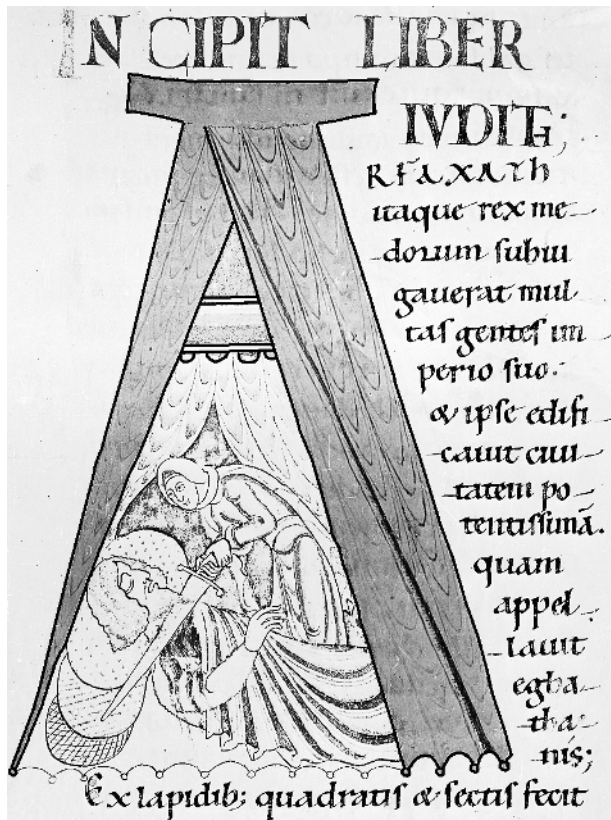 IN CIPIT LIBER
IVDITH;
ARFAXATh
itaque rex me-
dorum ſubiu
gauerat mul
tas genteſ im-
perio ſuo.
& ipſe edifi
cauit ciui-
tatem po-
tentiſſimā.
quam
appel-
lauit
egba-
tha-
nis;
Ex lapidib; quadratiſ & ſectiſ fecit